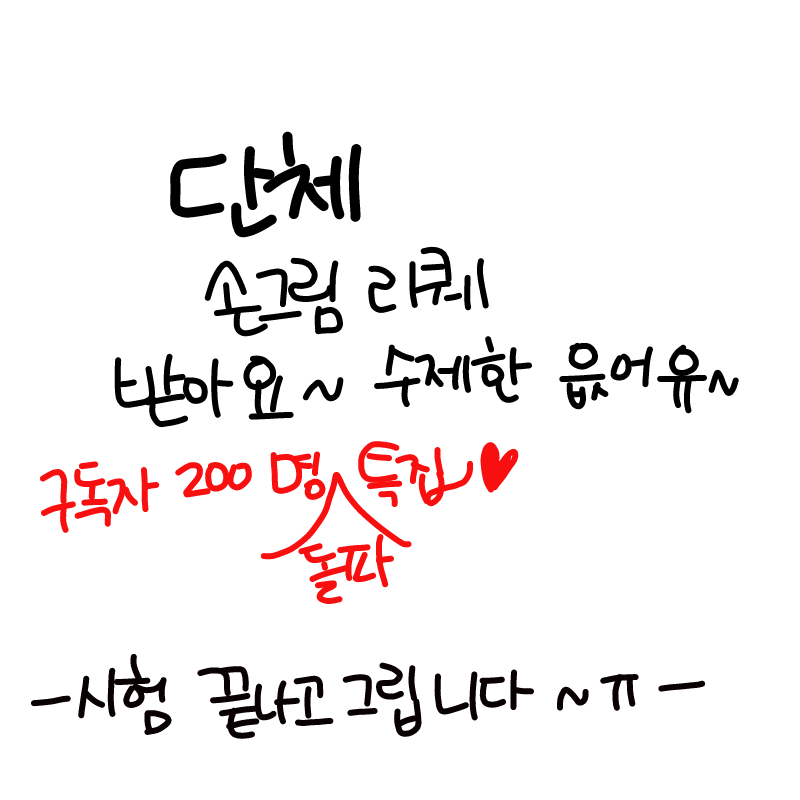 단체
손그림 리퀘
받아요~ 수제한 읎어유~
구독자 200명 돌파 특집♥
-시험 끝나고 그립니다~ㅠ-